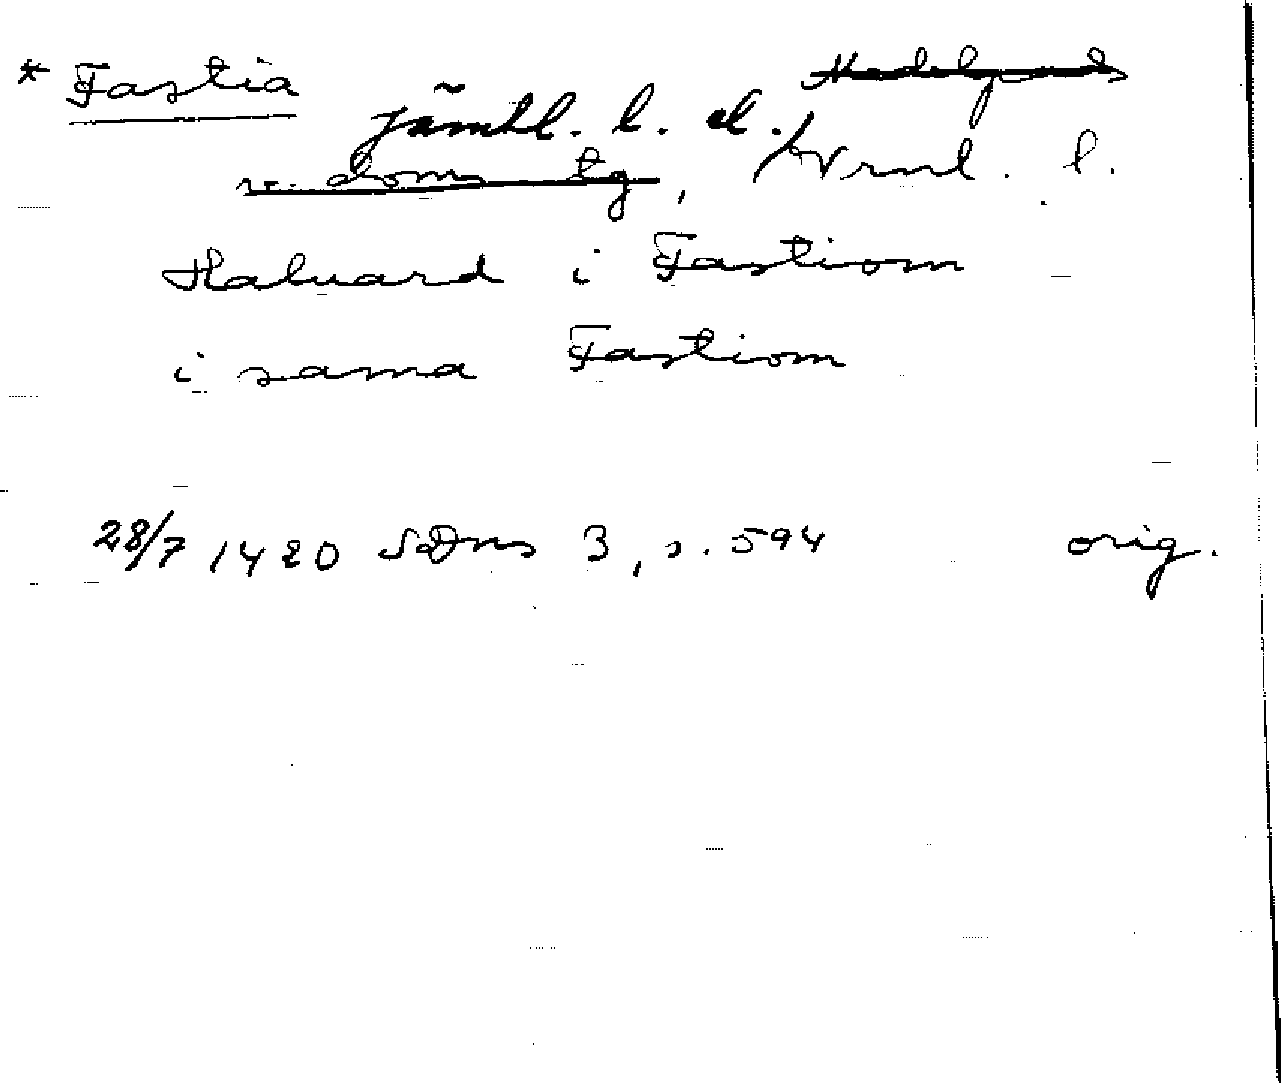 * Fastia Jämtl. l. el. ~~Medelpads~~
~~v. doms tg~~, Vrml. l.
Haluard i Fastiom
i sama Fastiom
28/7 1420 SvDns 3, s. 594 orig.